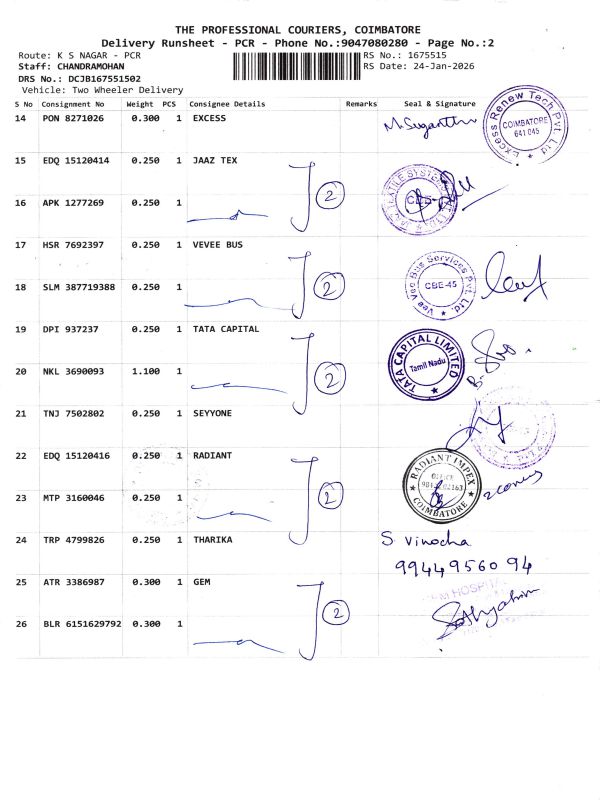 THE PROFESSIONAL COURIERS, COIMBATORE
Delivery Runsheet - PCR - Phone No.:9047080280 - Page No.:2
Route: K S NAGAR - PCR RS No.: 1675515
Staff: CHANDRAMOHAN RS Date: 24-Jan-2026
DRS No.: DCJB167551502
Vehicle: Two Wheeler Delivery
S No Consignment No Weight PCS Consignee Details Remarks Seal & Signature
14 PON 8271026 0.300 1 EXCESS
Excess Renew Tech Pvt. Ltd
COIMBATORE
641 045
15 EDQ 15120414 0.250 1 JAAZ TEX
2
16 APK 1277269 0.250 1
17 HSR 7692397 0.250 1 VEVEE BUS
2
Vee Vee Bus Services Pvt. Ltd.
CBE-45
18 SLM 387719388 0.250 1
19 DPI 937237 0.250 1 TATA CAPITAL
2
TATA CAPITAL LIMITED
Tamil Nadu
20 NKL 3690093 1.100 1
21 TNJ 7502802 0.250 1 SEYYONE
22 EDQ 15120416 0.250 1 RADIANT
2
RADIANT IMPEX
COIMBATORE
23 MTP 3160046 0.250 1
24 TRP 4799826 0.250 1 THARIKA
S Vinocha
99449560 94
25 ATR 3386987 0.300 1 GEM
2
HOSPITAL
26 BLR 6151629792 0.300 1